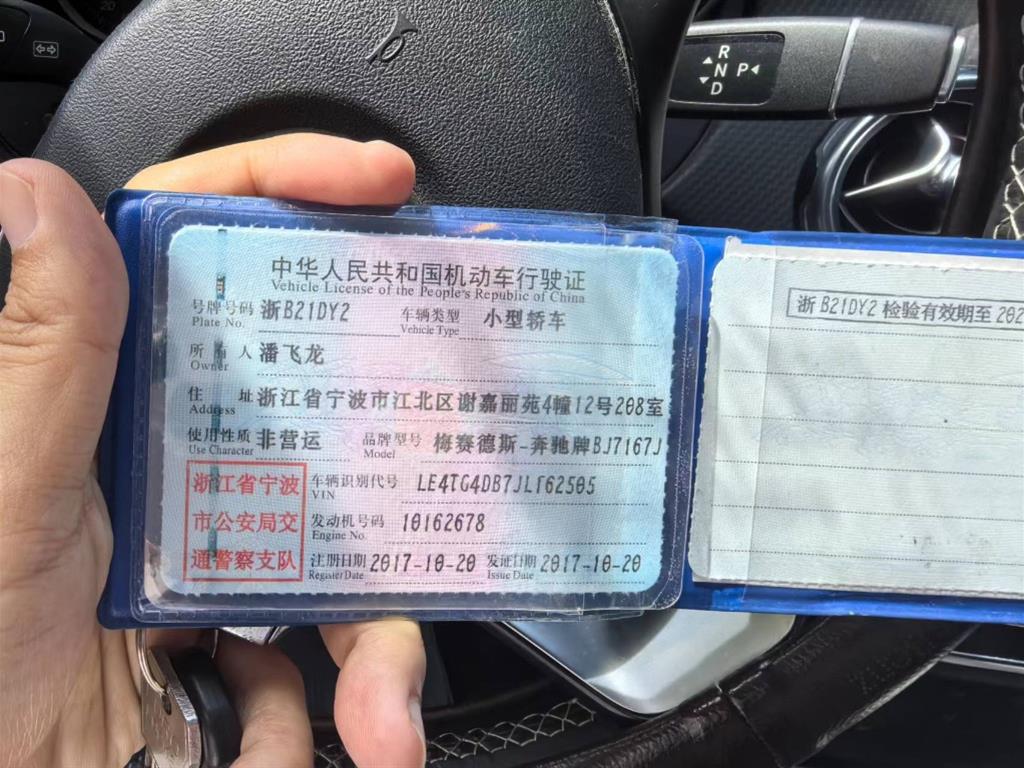 R
N P
D
中华人民共和国机动车行驶证
Vehicle License of the People's Republic of China
号牌号码 浙B21DY2 车辆类型 小型轿车
Plate No. Vehicle Type
所有人 潘飞龙
Owner
住址 浙江省宁波市江北区谢嘉丽苑4幢12号208室
Address
使用性质 非营运 品牌型号 梅赛德斯-奔驰牌BJ7167J
Use Character Model
浙江省宁波
市公安局交
通警察支队
车辆识别代号
VIN
发动机号码 10162678
Engine No.
注册日期 2017-10-20 发证日期 2017-10-20
Register Date Issue Date
浙B21DY2 检验有效期至 202